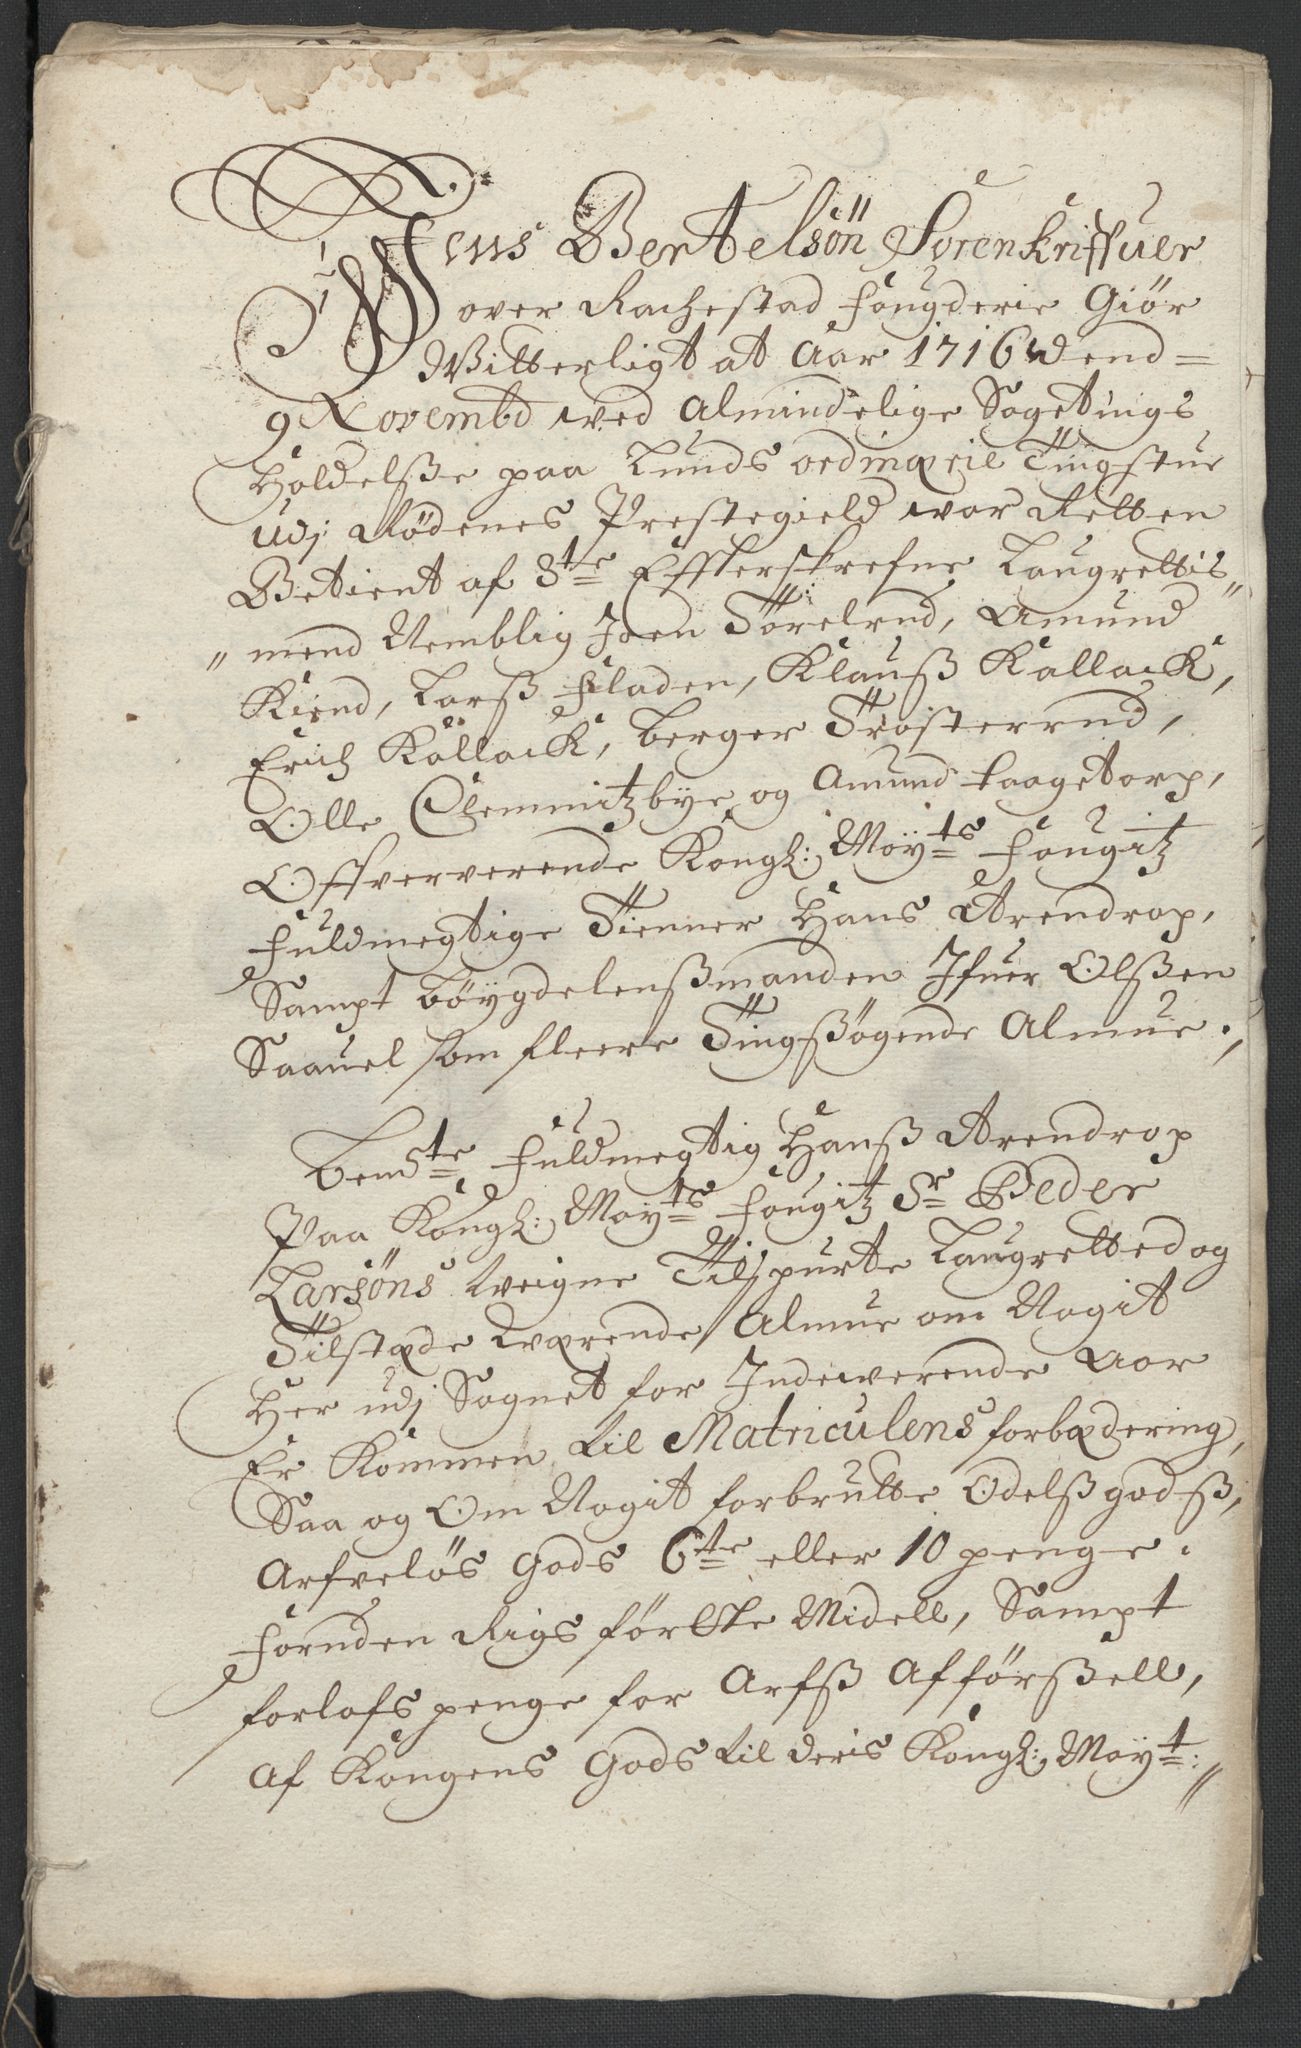 Jens Bertelsön Sorenskriffuer
over Rachestad Fougderie Giör
Witterligt at Aar 1716 dend=
9 Novembd ved Almindelige Sogetings
Holdelsse paa Lunds ordinarie Tingstue
udj Rödenes Prestegield war Retten
Betient af 8te Effterskrefne Laugrettis„
„mend Nemblig Joen Törelrud, Amund
Kiend, Larss Fladen, Klauss Kallack,
Erich Kallack, Berger Trosterrud,
Olle Clemmitzbye og Amund Haagetorp,
Offververende Kongl: Mayts Fougitz
Fuldmegtige Tienner Hans Arendrop,
Sampt Böygdelenssmanden Ifuer Olssen
Saauel som fleere Tingssögende Almue.,
Bemte Fuldmegtig Hanss Arendrop
Paa Kongl: Mayts Fougitz Sr Peder
Larsöns Weigne Tilspurte Laugretted og
Tilstæde Wærende Almue om Nogit
Her udj Sognet for Indewerende Aar
Er Kommen til Matriculens forbædering,
Saa og Om Nogit forbrutte Odelss godss,
Arfvelös Gods 6te eller 10 penge.
Fornden Rigs förtte Midell, Sampt
forlofs penge for Arfss Afförssell,
Af Kongens Gods til deris Kongl: Mayt: „